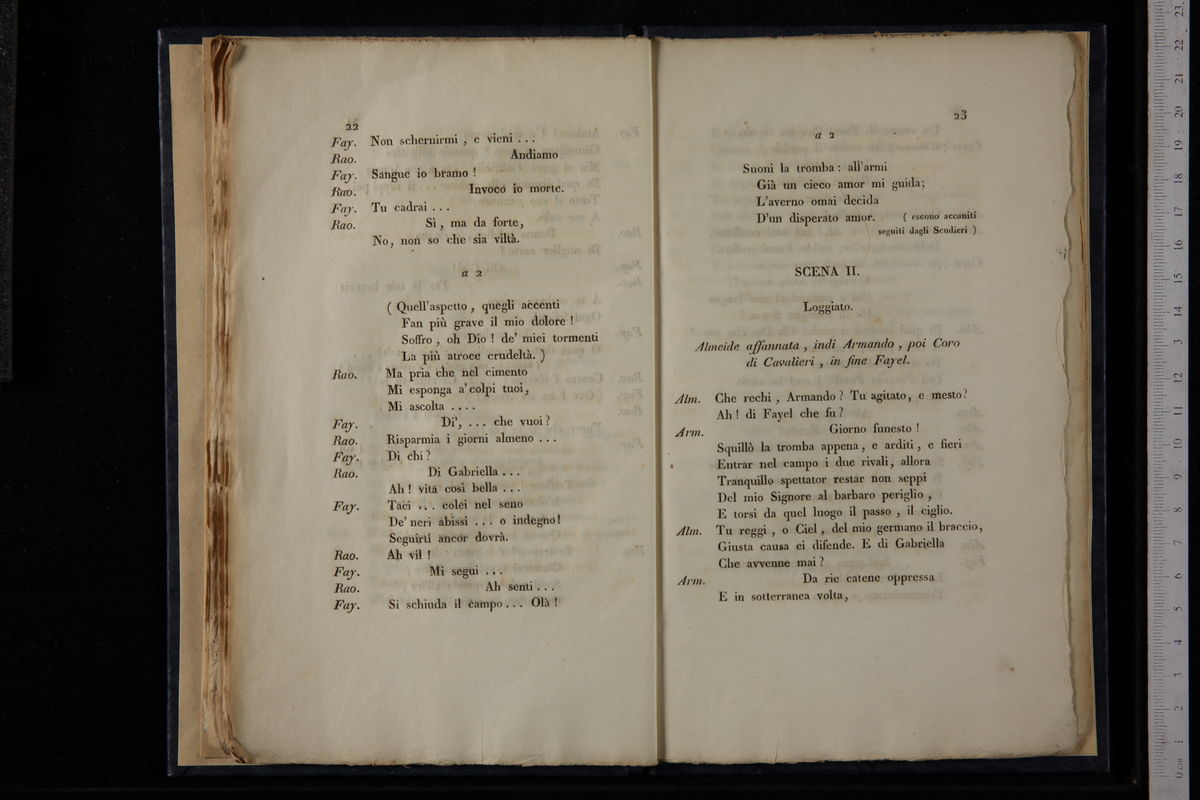 22
Fay. Non schernirmi , e vieni . . .
Rao. Andiamo.
Fay. Sangue io bramo !
Rao. Invoco io morte.
Fay. Tu cadrai . . .
Rao. Sì , ma da forte,
No, non so che sia viltà.
a 2
( Quell'aspetto , quegli accenti
Fan più grave il mio dolore !
Soffro , oh Dio ! de' miei tormenti
La più atroce crudeltà. )
Rao. Ma pria che nel cimento
Mi esponga a' colpi tuoi,
Mi ascolta . . . .
Fay. Di', . . . che vuoi ?
Rao. Risparmia i giorni almeno . . .
Fay. Di chi ?
Rao. Di Gabriella . . .
Ah ! vita così bella . . .
Fay. Taci . . . colei nel seno
De' neri abissi . . . o indegno!
Seguirti ancor dovrà.
Rao. Ah vil !
Fay. Mi segui . . .
Rao. Ah senti . . .
Fay. Si schiuda il campo . . . Olà !
23
a 2
Suoni la tromba : all'armi
Già un cieco amor mi guida;
L'averno omai decida
D'un disperato amor. ( escono accaniti
seguiti dagli Scudieri )
SCENA II.
Loggiato.
Almeide affannata , indi Armando , poi Coro
di Cavalieri , in fine Fayel.
Alm. Che rechi , Armando ? Tu agitato, e mesto?
Ah ! di Fayel che fu ?
Arm. Giorno funesto !
Squillò la tromba appena, e arditi , e fieri
Entrar nel campo i due rivali, allora
Tranquillo spettator restar non seppi
Del mio Signore al barbaro periglio ,
E torsi da quel luogo il passo , il ciglio.
Alm. Tu reggi , o Ciel , del mio germano il braccio,
Giusta causa ei difende. E di Gabriella
Che avvenne mai ?
Arm. Da rie catene oppressa
E in sotterranea volta,
0 cm 1 2 3 4 5 6 7 8 9 10 11 12 13 14 15 16 17 18 19 20 21 22 23